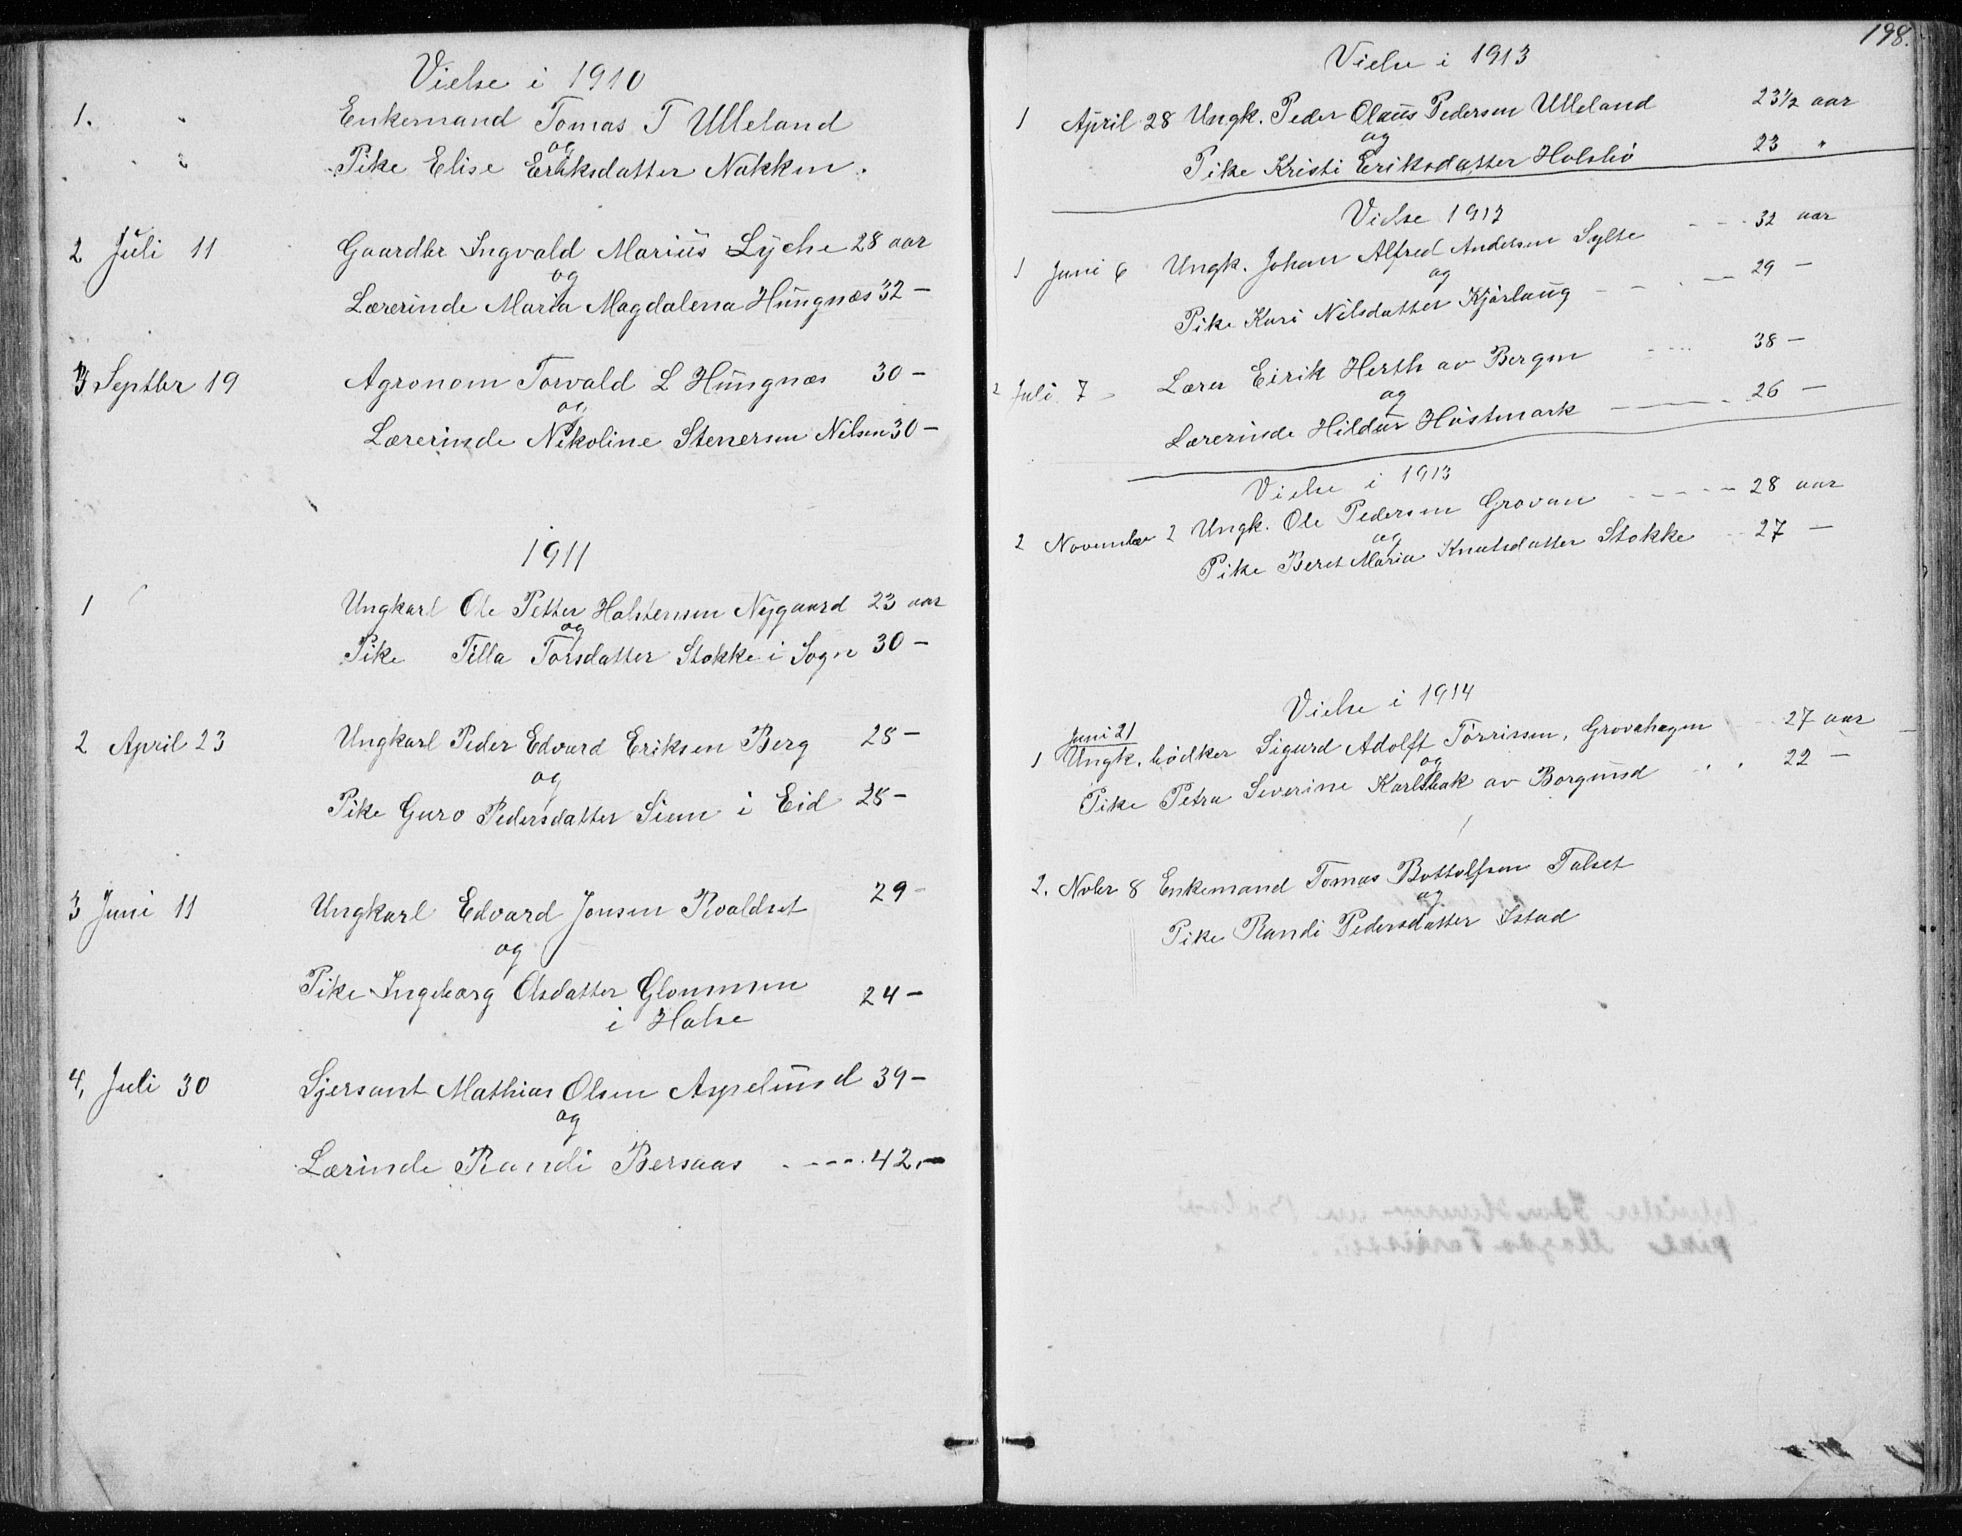 Vielse i 1910
1. Enkemand Tomas T Ulleland
og
Pike Elise Eriksdatter Nakken.
2 Juli 11 Gaardbr Ingvald Marius Lyche 28 aar
og
Lærerinde Maria Magdalena Hungnæs 32 –
3 Septbr 19 Agronom Torvald L Hungnæs 30 –
og
Lærerinde Nikoline Stenersen Nilsen 30 –
1911
1 Ungkarl Ole Petter Holstensen Nygaard 23 aar
og
Pike Tilla Torsdatter Stokke i Sogn 30 –
2 April 23 Ungkarl Peder Edvard Eriksen Berg 28 –
og
Pike Guro Pedersdatter Siem i Eid 28 –
3 Juni 11 Ungkarl Edvard Jonsen Roaldset 29 –
og
Pike Ingeborg Olsdatter Glommen 24 –
i Halse
4, Juli 30 Sjersant Mathias Olsen Aspelund 39 –
og
Lærinde Randi Bersaas . - - - - . 42. –
198.
Vielse i 1913
1 April 28 Ungk. Peder Olaus Pedersen Ulleland 23 1/2 aar
og
Pike Kristi Eriksdatter Holsbø 23 "
Vielse 1912
1 Juni 6 Ungk. Johan Alfred Andersen Sylte - - - 32 aar
og
Pike Kari Nilsdatter Kjørlaug - - . - 29 –
2 Juli 7 – Lærer Eirik Herth av Bergen - - - - 38 –
og
Lærerinde Hildur Høstmark - - - - . 26 –
Vielse i 1913
2 November 2 Ungk. Ole Pedersen Grovan - - - - - 28 aar
og
Pike Beret Maria Knutsdatter Stokke - - 27 –
Vielse i 1914
Juni 21
1 Ungk. bødker Sigurd Adolft Tørrissen, Grovahagen 27 aar
og
Pike Petra Severine Karlsbak av Borgund . . 22 –
2. Nober 8 Enkemand Tomas Bottolfsen Talset
og
Pike Randi Pedersdatter Istad